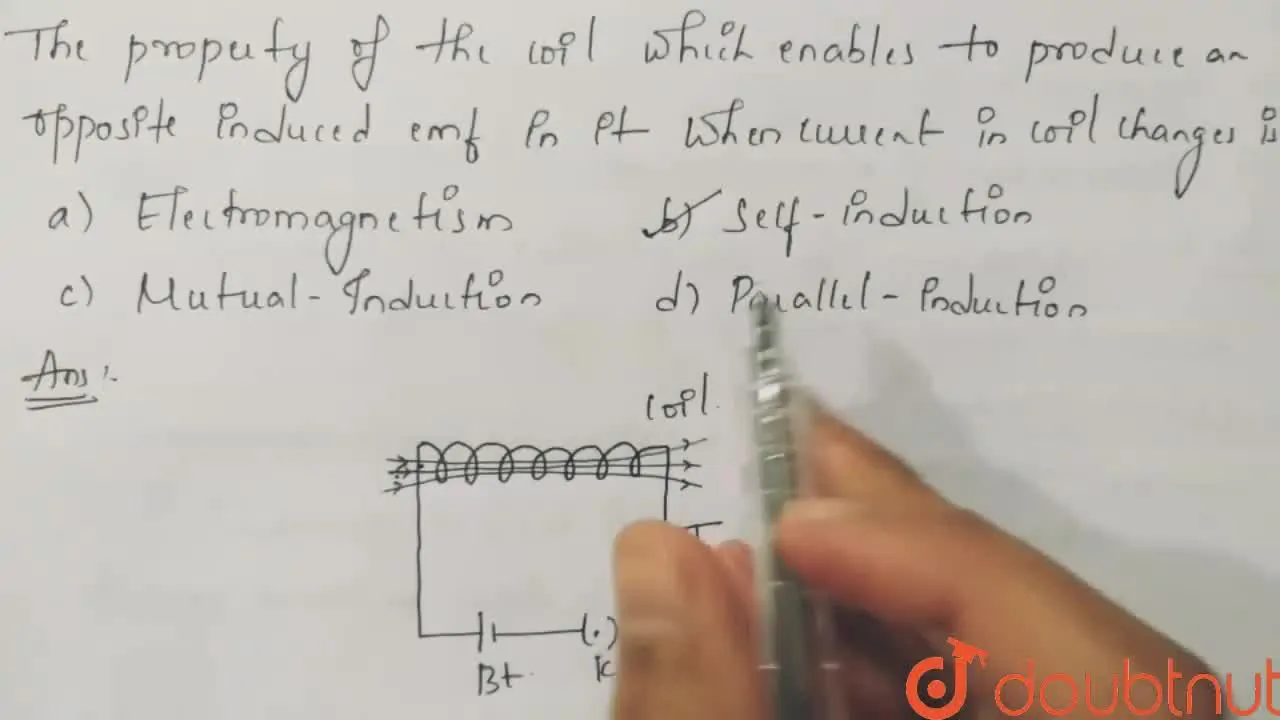 The property of the coil which enables to produce an
opposite induced emf in it when current in coil changes is
a) Electromagnetism b) Self-induction
c) Mutual-Induction d) Parallel-Induction
Ans:
Coil.
I
Bt. K
doubtnut